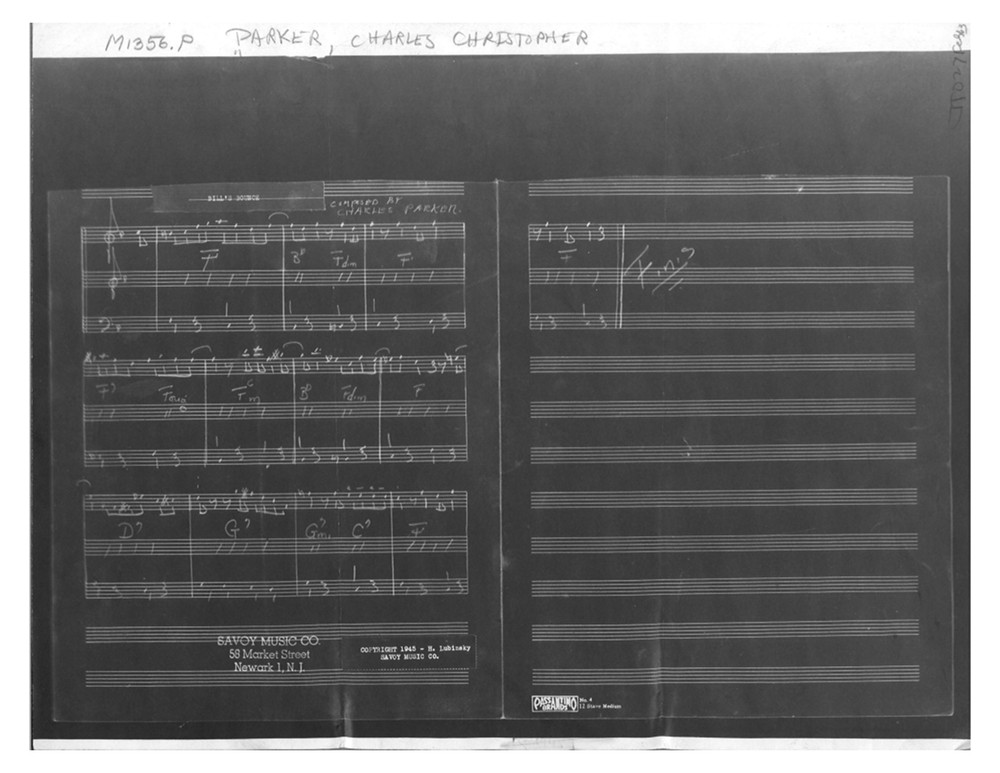 M1356.P PARKER, CHARLES CHRISTOPHER
BILL'S BOUNCE
COMPOSED BY
CHARLES PARKER.
F Bb Fdim F7
F7 Fm Bb Fdim F
D7 G7 Gmi7 C7 F
SAVOY MUSIC CO.
58 Market Street
Newark 1, N. J.
COPYRIGHT 1945 - H. Lubinsky
SAVOY MUSIC CO.
F
Fini
PASSANTINO
BRANDS
No. 4
12 Stave Medium